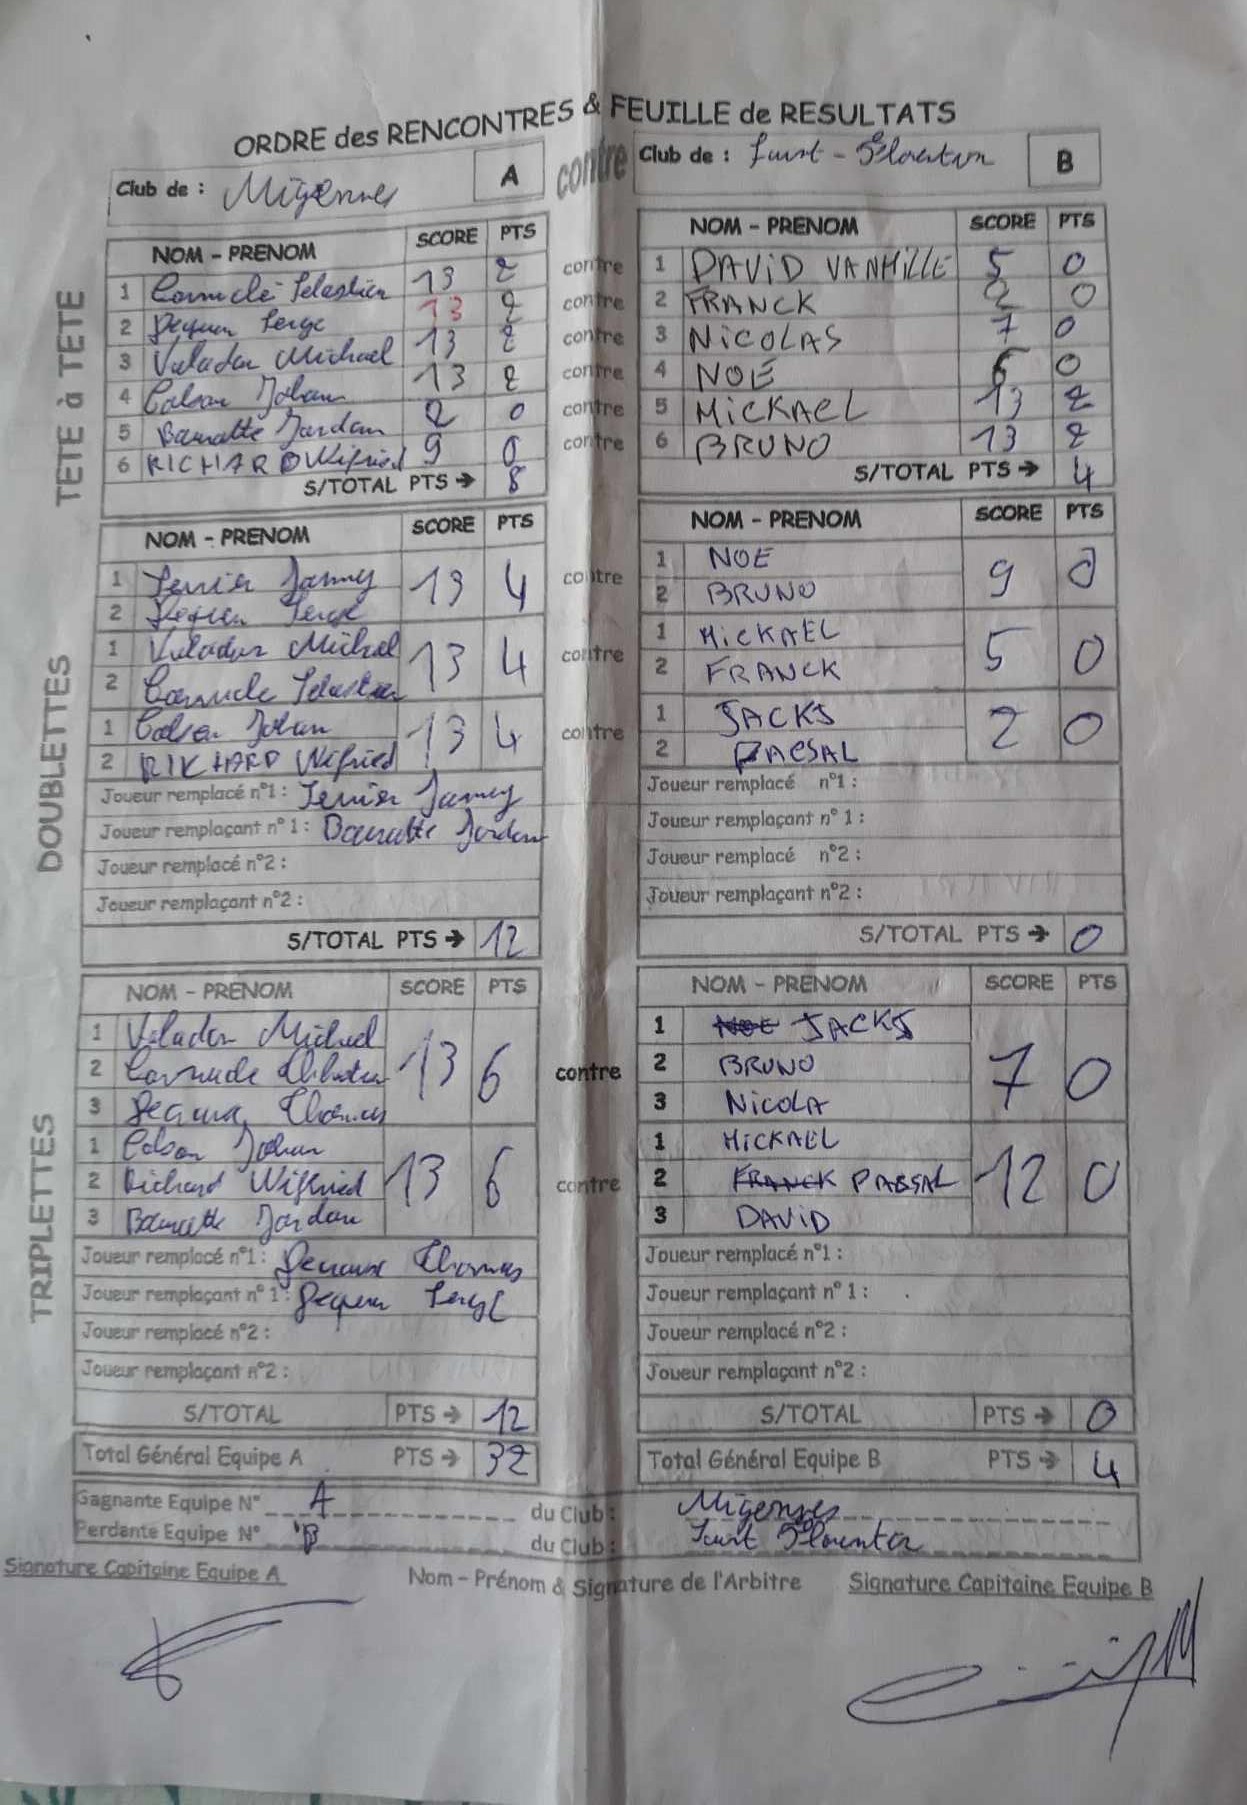 ORDRE des RENCONTRES & FEUILLE de RESULTATS
Club de : Migennes A contre Club de : Saint-Florentin B
TETE à TETE
NOM - PRENOM SCORE PTS NOM - PRENOM SCORE PTS
1 Sebastien 13 2 contre 1 DAVID VANHILLE 5 0
2 Serge 13 2 contre 2 FRANCK 2 0
3 Valadon Michael 13 2 contre 3 NICOLAS 7 0
4 Colson Johan 13 2 contre 4 NOÉ 6 0
5 Jordan 2 0 contre 5 MICKAEL 13 2
6 RICHARD Wifried 9 0 contre 6 BRUNO 13 2
S/TOTAL PTS → 8 S/TOTAL PTS → 4
DOUBLETTES
NOM - PRENOM SCORE PTS NOM - PRENOM SCORE PTS
1 13 4 contre 1 NOE 9 0
2 Serge 2 BRUNO
1 Valadon Michel 13 4 contre 1 MICKAEL 5 0
2 Sebastien 2 FRANCK
1 Colson Johan 13 4 contre 1 JACKS 2 0
2 RIKHARD Wifried 2 PACSAL
Joueur remplacé n°1 : Joueur remplacé n°1 :
Joueur remplaçant n° 1 : Jordan Joueur remplaçant n° 1 :
Joueur remplacé n°2 : Joueur remplacé n°2 :
Joueur remplaçant n°2 : Joueur remplaçant n°2 :
S/TOTAL PTS → 12 S/TOTAL PTS → 0
TRIPLETTES
NOM - PRENOM SCORE PTS NOM - PRENOM SCORE PTS
1 Valadon Michel 13 6 contre 1 NOE JACKS 7 0
2 2 BRUNO
3 Thomas 3 NICOLA
1 Colson Johan 13 6 contre 1 MICKAEL 12 0
2 Richard Wilfried 2 FRANCK PASSAL
3 Jordan 3 DAVID
Joueur remplacé n°1 : Thomas Joueur remplacé n°1 :
Joueur remplaçant n° 1 : Serge Joueur remplaçant n° 1 :
Joueur remplacé n°2 : Joueur remplacé n°2 :
Joueur remplaçant n°2 : Joueur remplaçant n°2 :
S/TOTAL PTS → 12 S/TOTAL PTS → 0
Total Général Equipe A PTS → 32 Total Général Equipe B PTS → 4
Gagnante Equipe N° A du Club : Migennes
Perdante Equipe N° B du Club : Saint Florentin
Signature Capitaine Equipe A Nom - Prénom & Signature de l'Arbitre Signature Capitaine Equipe B